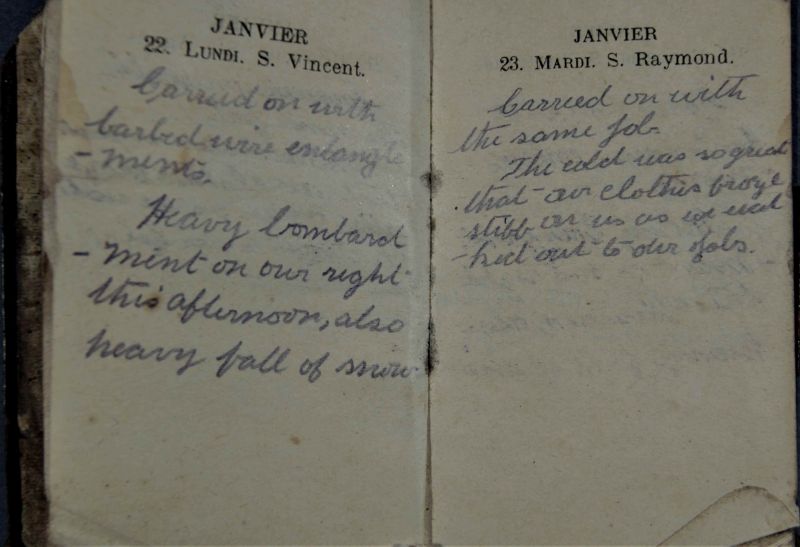 JANVIER
22. LUNDI. S. Vincent.
Carried on with
barbed wire entangle
- ments.
Heavy bombard
- ment on our right
this afternoon, also
heavy fall of snow.
JANVIER
23. MARDI. S. Raymond.
Carried on with
the same job.
The cold was so great
that our clothes froze
stiff on us as we wal
- ked out to our jobs.